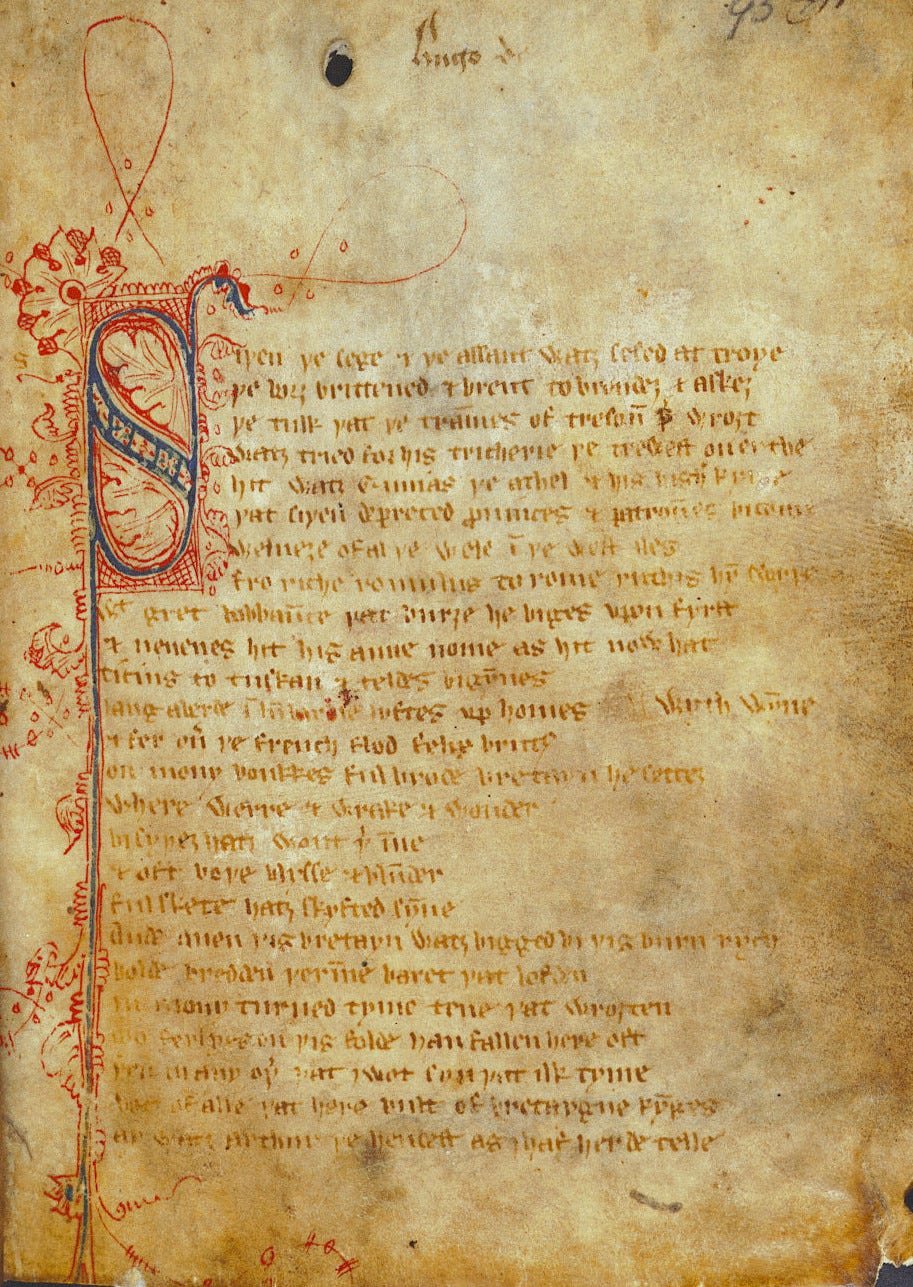 Hugo d
Siþen þe sege & þe assaut watz sesed at troye
þe borȝ brittened & brent to brondeȝ & askeȝ
þe tulk þat þe trammes of tresoun þer wroȝt
watz tried for his tricherie þe trewest on erthe
hit watz Ennias þe athel & his highe kynde
þat siþen depreced prouinces & patrounes bicome
welneȝe of al þe wele in þe west iles
fro riche romulus to rome ricchis hym swyþe
with gret bobbaunce þat burȝe he biges vpon fyrst
& neuenes hit his aune nome as hit now hat
ticius to tuskan & teldes bigynnes
langaberde in lumbardie lyftes vp homes
& fer ouer þe french flod felix brutus
on mony bonkkes ful brode bretayn he setteȝ
wyth wynne
where werre & wrake & wonder
bi syþeȝ hatz wont þerinne
& oft boþe blysse & blunder
ful skete hatz skyfted synne
Ande quen þis bretayn watz bigged bi þis burn rych
bolde bredden þerinne baret þat lofden
in mony turned tyme tene þat wroȝten
mo ferlyes on þis folde han fallen here oft
þen in any oþer þat I wot syn þat ilk tyme
bot of alle þat here bult of bretaygne kynges
ay watz arthur þe hendest as I haf herde telle